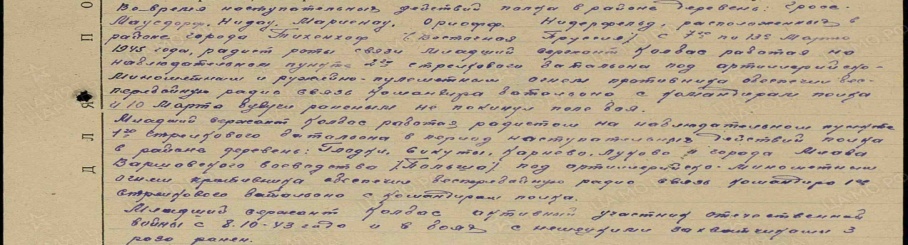 Во время наступательных действий полка в районе деревень: Гросс-
Маусдорф, Нидау, Мариенау, Орлофф. Нидерфельд, расположенных в
районе города Тихенхоф (Восточная Пруссия) с 7го по 13е Марта
1945 года, радист роты связи младший сержант Колбас работая на
наблюдательном пункте 2го стрелкового батальона под артиллерийско-
минометным и ружейно-пулеметным огнем противника обеспечил бес-
перебойную радио связь командира батальона с командиром полка
и 10 Марта будучи раненым не покинул поле боя.
Младший сержант Колбас работая радистом на наблюдательном пункте
1го стрелкового батальона в период наступательных действий полка
в районе деревень: Глодки, Бикуты, Карнево, Луково и города Млава
Варшовского воеводства (Польша) под артиллерийско-минометным
огнем противника обеспечил бесперебойную радио связь командира 1го
стрелкового батальона с командиром полка.
Младший сержант Колбас активный участник отечественной
войны с 8.10-43 года и в боях с немецкими захватчиками 3
раза ранен.
Д Л Я П О